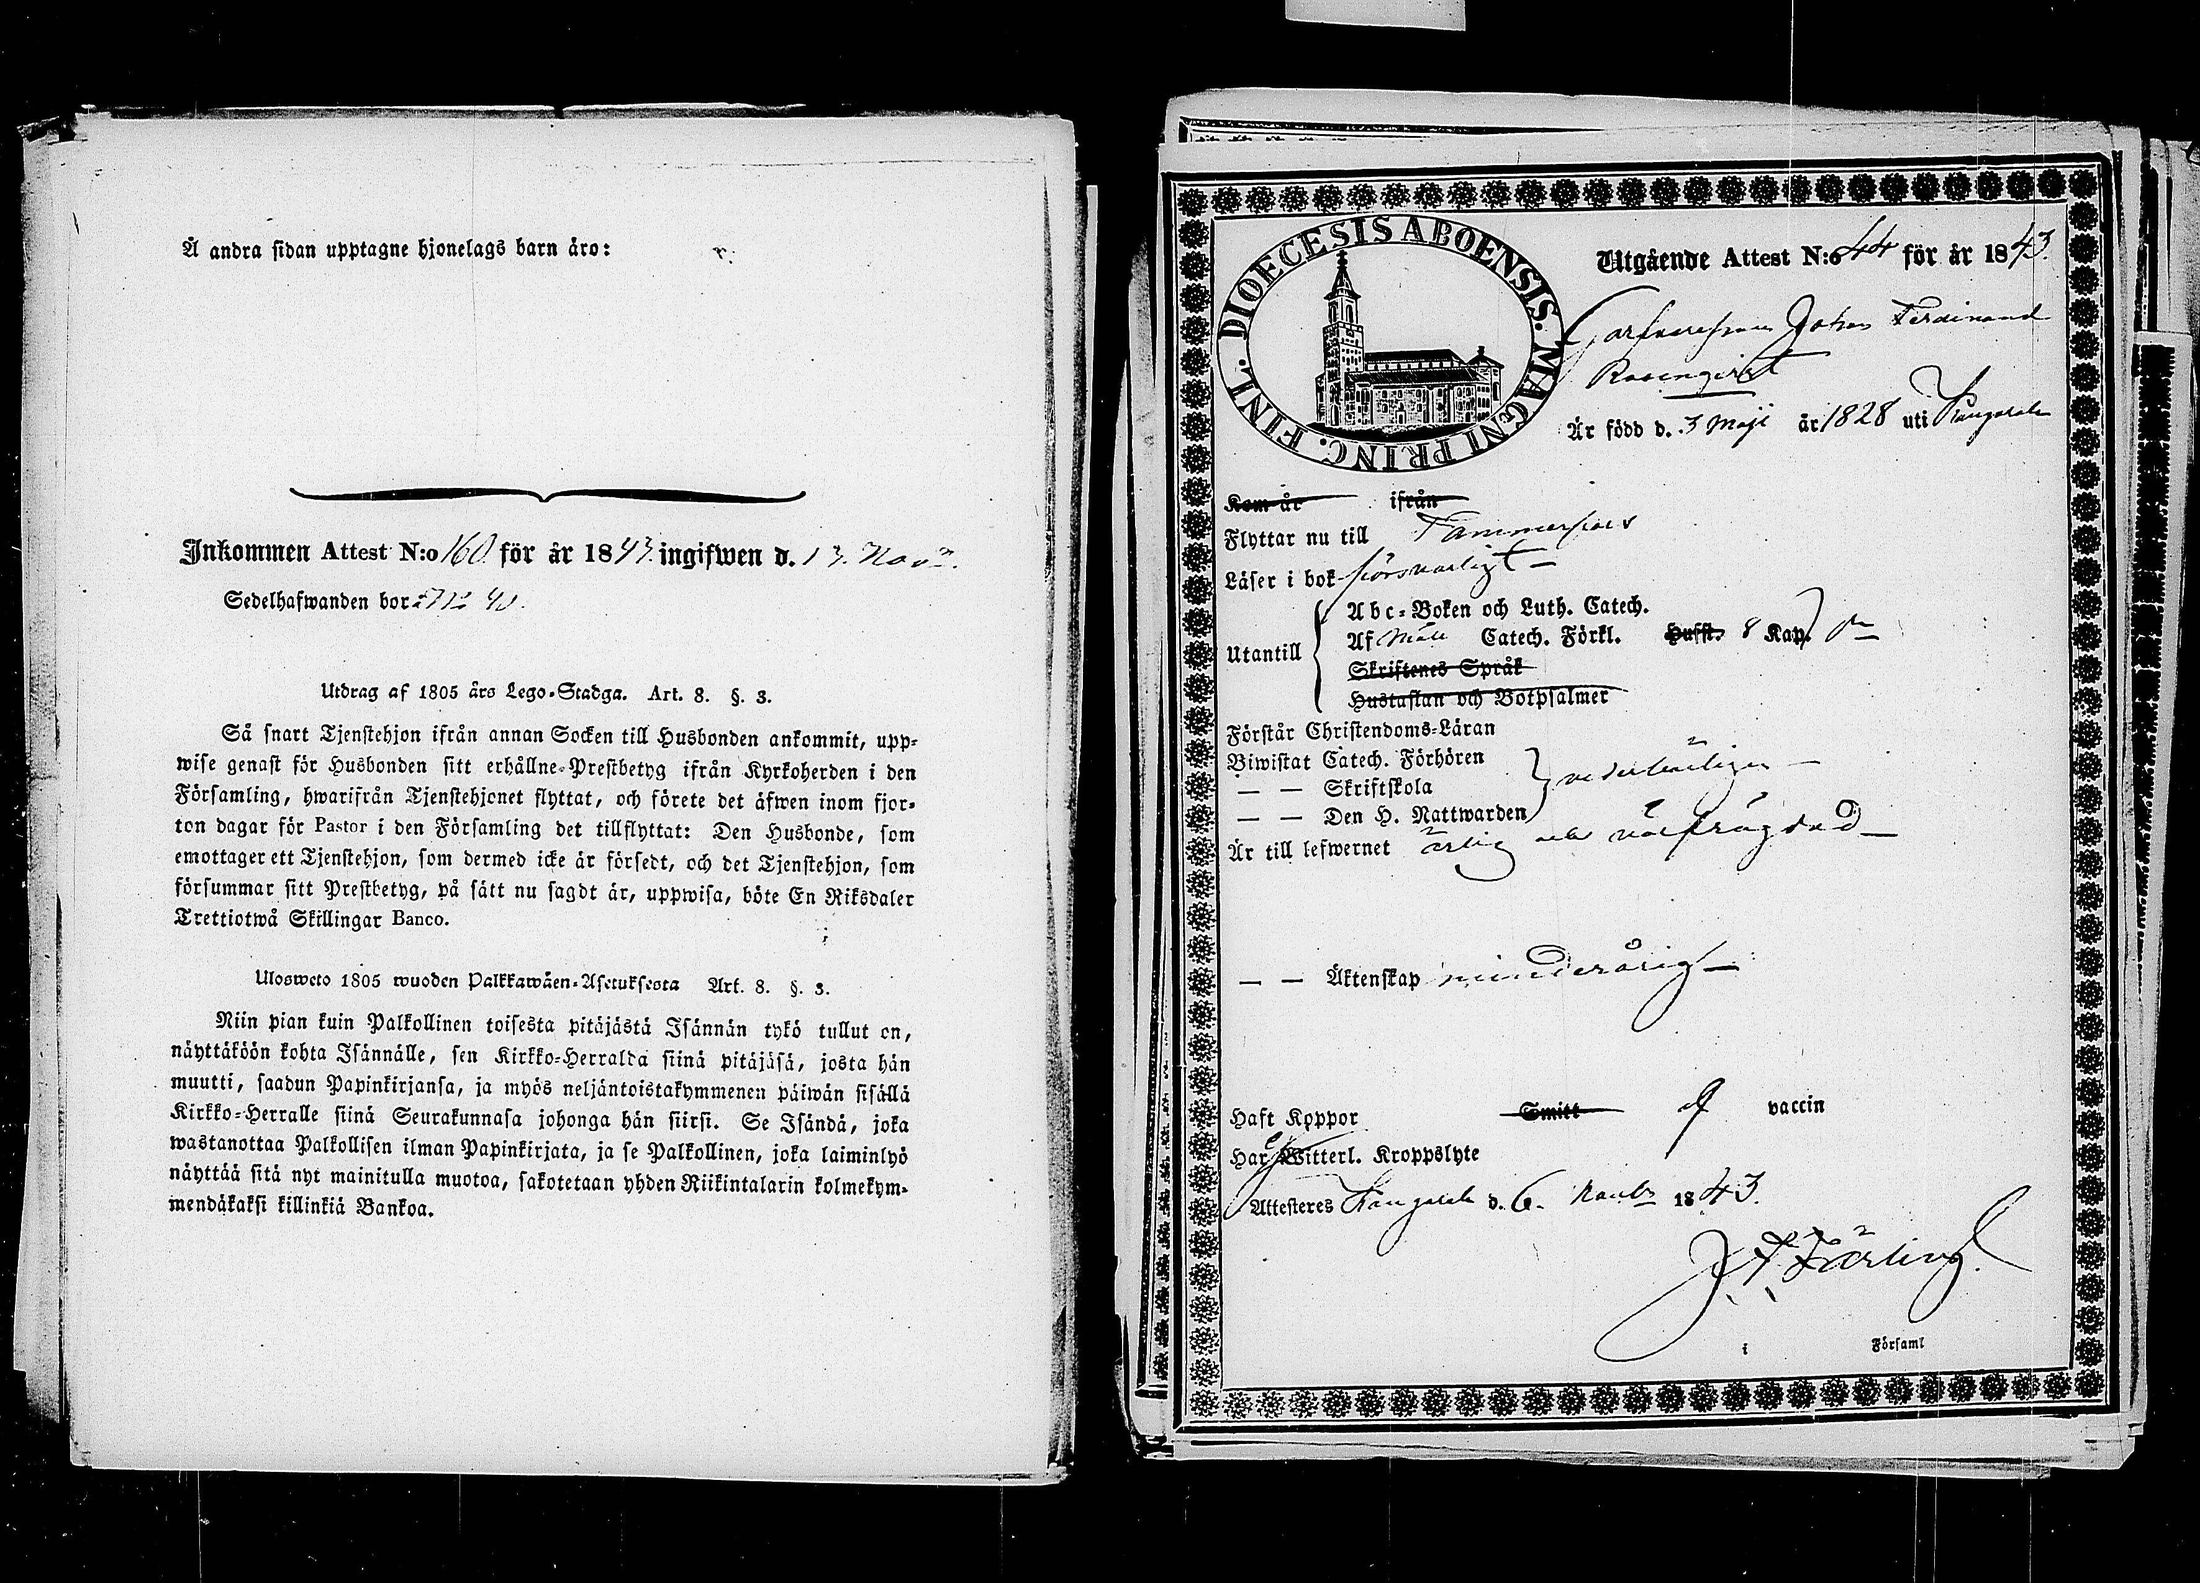 Å andra sidan upptagne hjonelags barn äro:
Inkommen Attest N:o 160 för år 1843 ingifwen d. 13. Nov.
Sedelhafwanden bor
Utdrag af 1805 års Lego-Stadga. Art. 8. §. 3.
Så snart Tjenstehjon ifrån annan Socken till Husbonden ankommit, upp-
wise genast för Husbonden sitt erhållne Prestbetyg ifrån Kyrkoherden i den
Församling, hwarifrån Tjenstehjonet flyttat, och förete det äfwen inom fjor-
ton dagar för Pastor i den Församling det tillflyttat: Den Husbonde, som
emottager ett Tjenstehjon, som dermed icke är försedt, och det Tjenstehjon, som
försummar sitt Prestbetyg, på sätt nu sagdt är, uppwisa, böte En Riksdaler
Trettiotwå Skillingar Banco.
Ulosweto 1805 wuoden Palkkawäen-Asetuksesta Art. 8. §. 3.
Niin pian kuin Palkollinen toisesta pitäjästä Isännän tykö tullut on,
näyttäköön kohta Isännälle, sen Kirkko-Herralda siinä pitäjäsä, josta hän
muutti, saadun Papinkirjansa, ja myös neljäntoistakymmenen päiwän sisällä
Kirkko-Herralle siinä Seurakunnasa johonga hän siirsi. Se Isändä, joka
wastanottaa Palkollisen ilman Papinkirjata, ja se Palkollinen, joka laiminlyö
näyttää sitä nyt mainitulla muotoa, sakotetaan yhden Riikintalarin kolmekym-
mendäkaksi killinkiä Bankoa.
DIOECESIS ABOENSIS. MAGNI PRINC. FINL.
Utgående Attest N:o 44 för år 1843.
Garfvaresonen Johan Ferdinand
Rosenqvist
Är född d. 3 Maji år 1828 uti Kangasala
Kom år ifrån
Flyttar nu till Tammerfors
Läser i bok försvarligt
Utantill
Abc-Boken och Luth. Catech.
Af Möll Catech. Förkl. Husst. 8 Kap.
Skriftenes Språk
Hustaflan och Botpsalmer
Förstår Christendoms-Läran
Biwistat Catech. Förhören
— — Skriftskola vederbörligen
— — Den H. Nattwarden
Är till lefwernet ärlig och välfrägdad
— — Äktenskap minderårig
Haft Koppor Smitt af vaccin
Har ej Witterl. Kroppslyte
Attesteres Kangasala d. 6. Novbr 1843.
i Församl